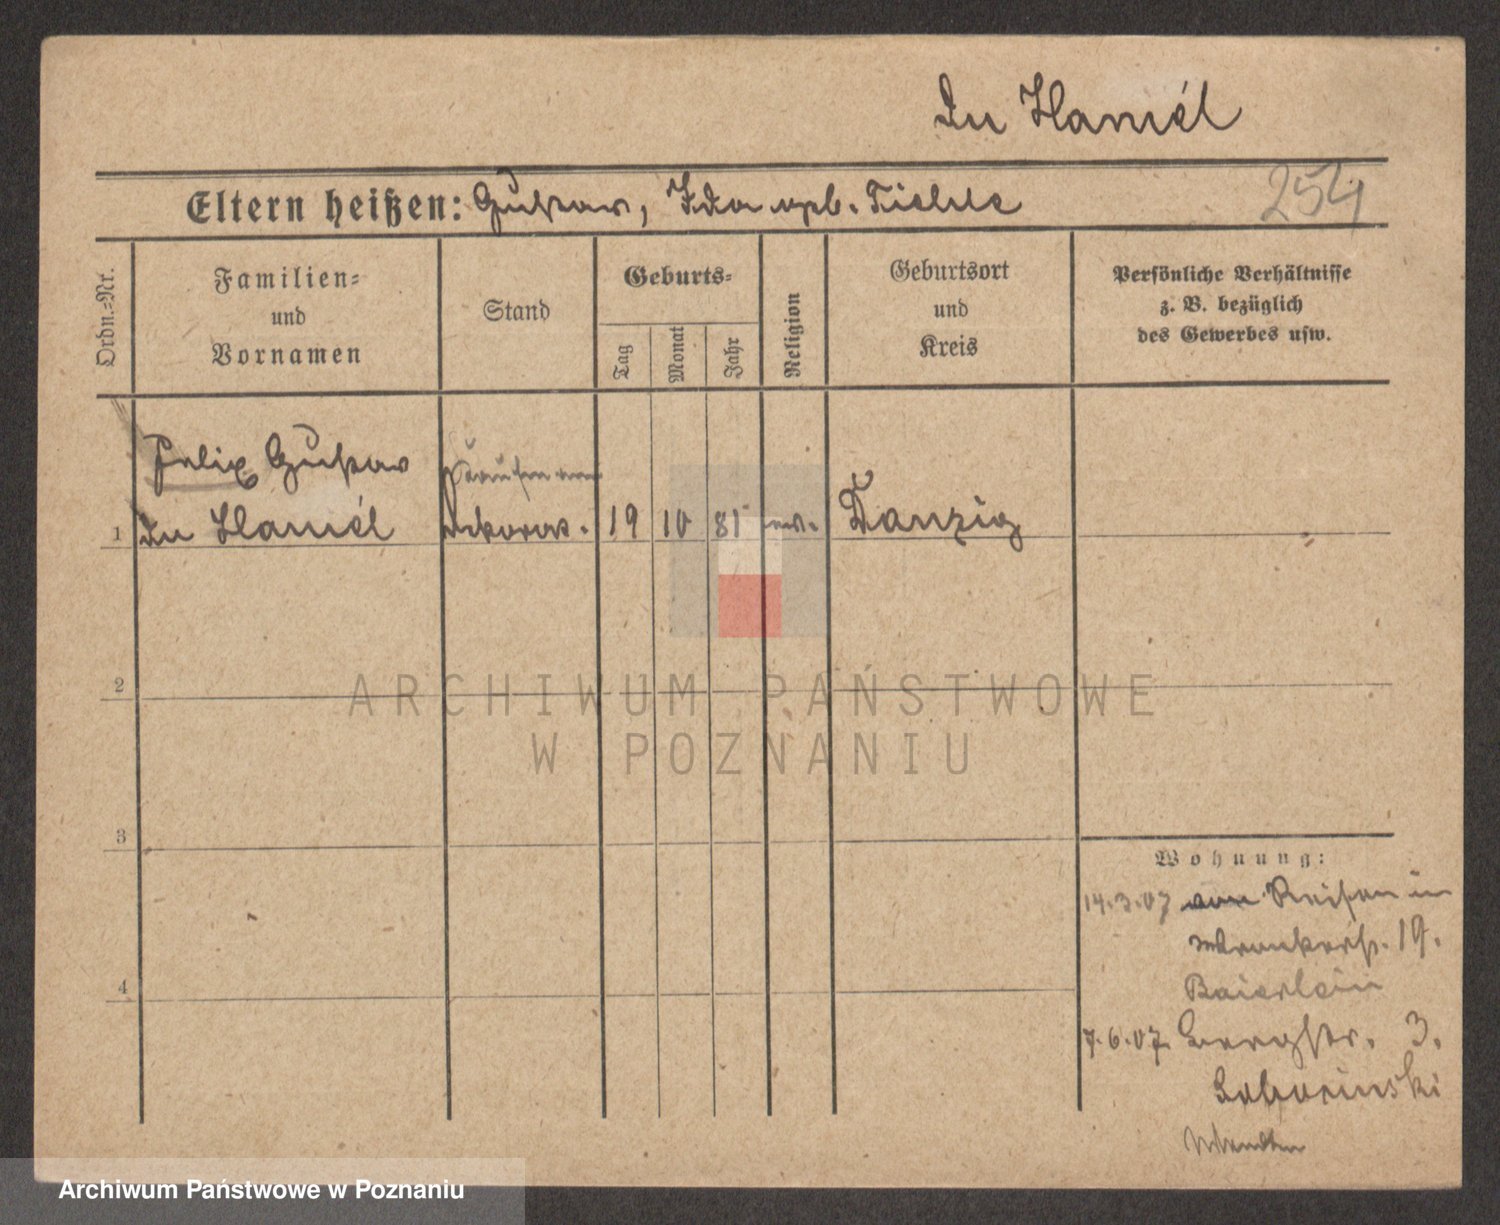 Du Hamél
Eltern heißen: Gustav, Ida geb. Tielke
254
Ordn.=Nr.
Familien=
und
Vornamen
Stand
Geburts=
Tag
Monat
Jahr
Religion
Geburtsort
und
Kreis
Persönliche Verhältnisse
z. B. bezüglich
des Gewerbes usw.
Felix Gustav
Kaufmann
1 Du Hamél Dekorat. 19 10 81 ev. Danzig
2
3
4
Wohnung:
14.3.07 von Reisen in
Wronkerstr. 19.
Baierlein
7.6.07 Bergstr. 3.
ARCHIWUM PAŃSTWOWE
W POZNANIU
Archiwum Państwowe w Poznaniu